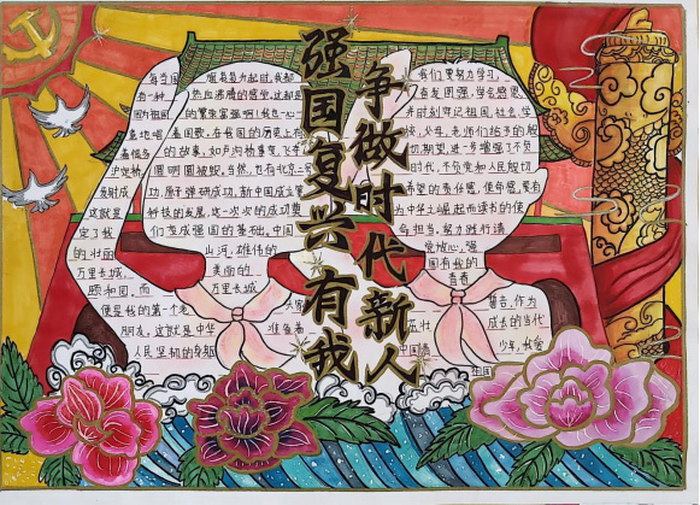 强国复兴有我
争做时代新人
每当国旗冉冉升起时,我都
有一种热血沸腾的感觉,这都是
因为祖国的繁荣富强啊!我也一心
意地唱着国歌。在我国的历史上有
着很多的故事,如卢沟桥事变,飞夺
泸定桥,圆明园被毁,当然,也有北京
发射成功,原子弹研成功,新中国成立
这就是科技的发展,这一次次的成功奠
定了我们造成强国的基础。中国
的壮丽山河,雄伟的
万里长城美丽的
颐和园,而万里长城
便是我的第一个老大家
朋友,这就是中华准备着
人民坚韧的身躯
我们要努力学习,
奋发图强,学会感恩
并时刻牢记祖国、社会、学
校、老师们给予的殷
切期望,进一步增强了不负
时代,不负党和人民殷切
希望的责任感,使命感,要有
为中华之崛起而读书的使
命担当,努力践行请
党放心,强
国有我的
青春
誓言,作为
茁壮成长的当代
中国少年,我爱
祖国